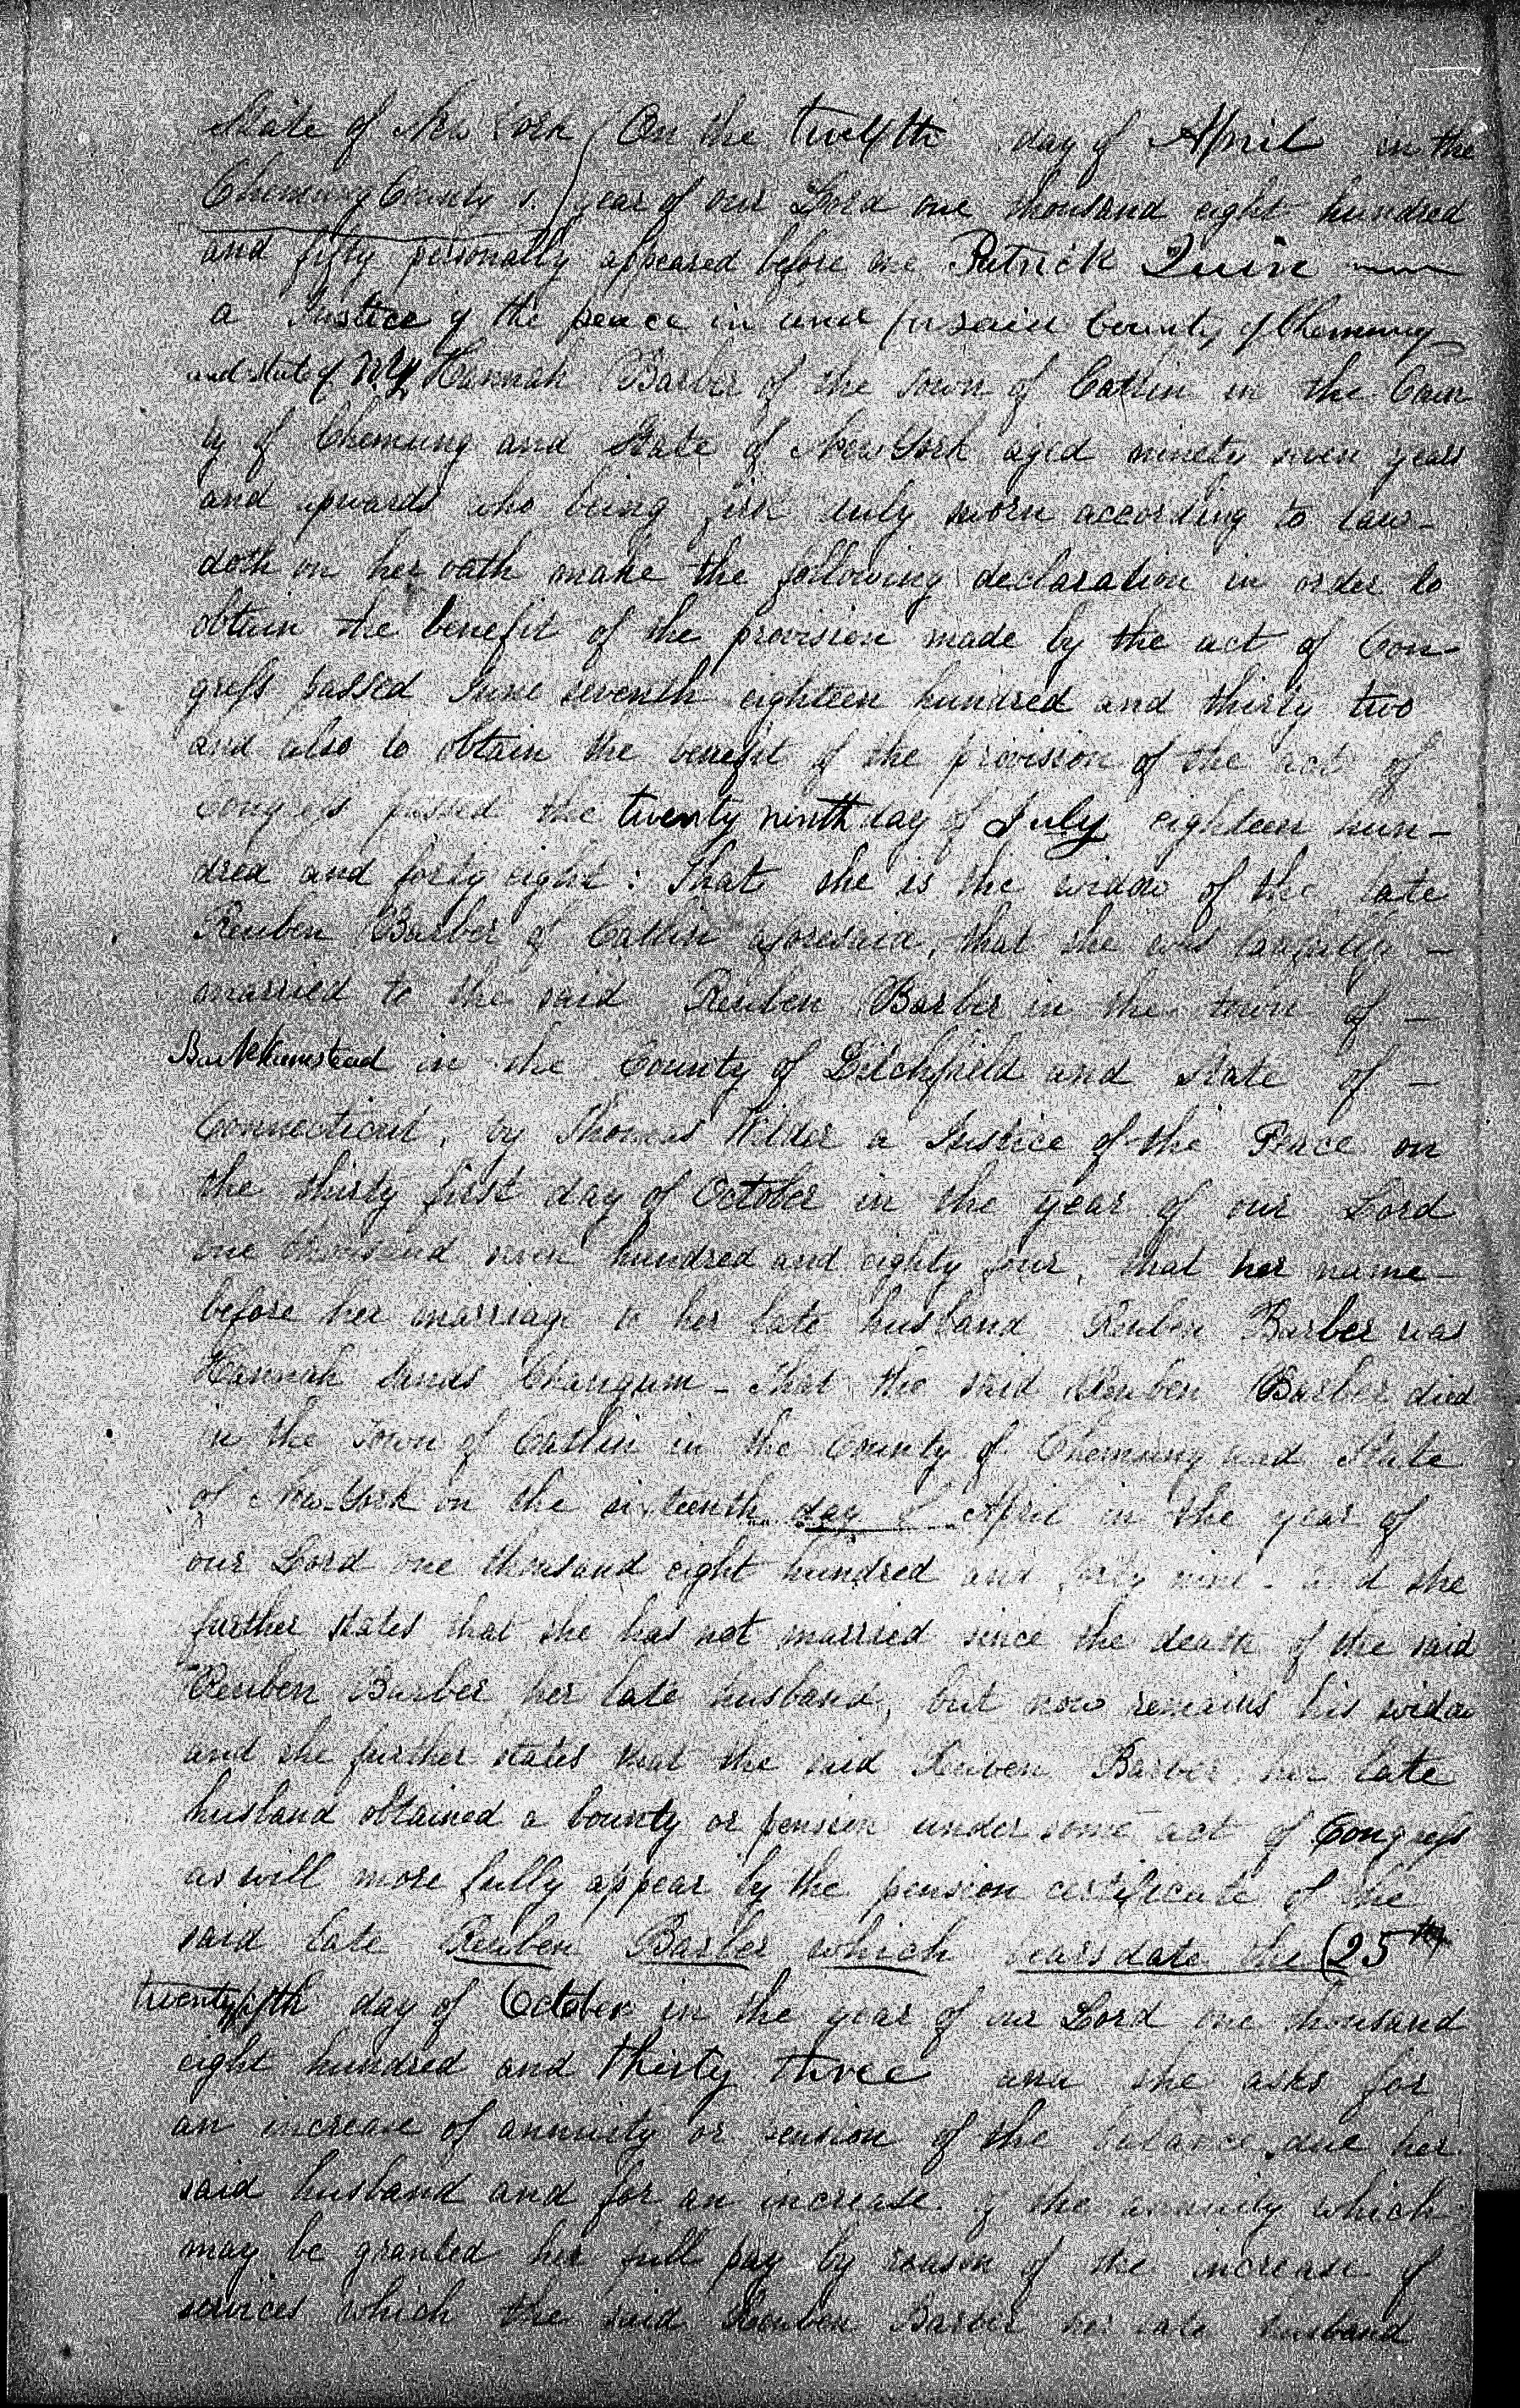 State of New York ( On the twelfth day of April in the
Chemung County s. ) year of our Lord one thousand eight hundred
and fifty personally appeared before me Patrick Quin
a Justice of the peace in and for said County of Chemung
and state of N.Y. Hannah Barber of the town of Catlin in the Coun
ty of Chemung and State of New York aged ninety seven years
and upwards who being first duly sworn according to law-
doth on her oath make the following declaration in order to
obtain the benefit of the provision made by the act of Con-
gress passed June seventh eighteen hundred and thirty two
and also to obtain the benefit of the provision of the act of
congress passed the twenty ninth day of July eighteen hun-
dred and forty eight: That she is the widow of the late
Reuben Barber of Catlin aforesaid, that she was lawfully -
married to the said Reuben Barber in the town of -
Barkhamstead in the County of Litchfield and State of -
Connecticut, by Thomas Wilder a Justice of the Peace on
the thirty first day of October in the year of our Lord
one thousand seven hundred and eighty four, that her name-
before her marriage to her late husband Reuben Barber was
Hannah Sands Chaugum - that the said Reuben Barber died
in the town of Catlin in the County of Chemung and State
of New-York on the sixteenth day of April in the year of
our Lord one thousand eight hundred and forty nine - and she
further states that she has not married since the death of the said
Reuben Barber her late husband, but now remains his widow
and she further states that the said Reuben Barber her late
husband obtained a bounty or pension under some act of Congress
as will more fully appear by the pension certificate of the
said late Reuben Barber which bears date the (25th
twenty fifth day of October in the year of our Lord one thousand
eight hundred and thirty three and she asks for
an increase of annuity or pension of the balance due her
said husband and for an increase of the annuity which
may be granted her full pay by reason of the increase of
services which the said Reuben Barber her late husband